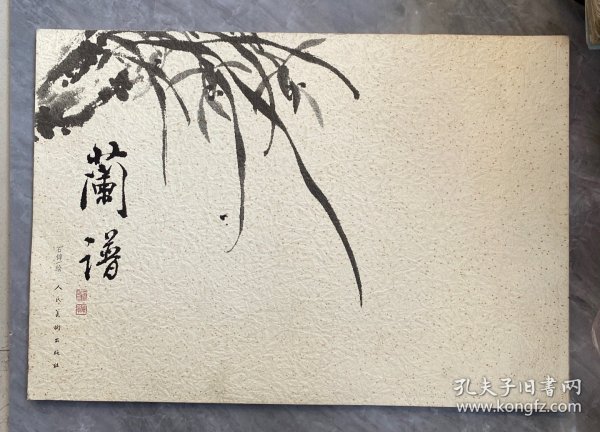 蘭譜
人民美术出版社
孔夫子旧書网
www.kongfz.com